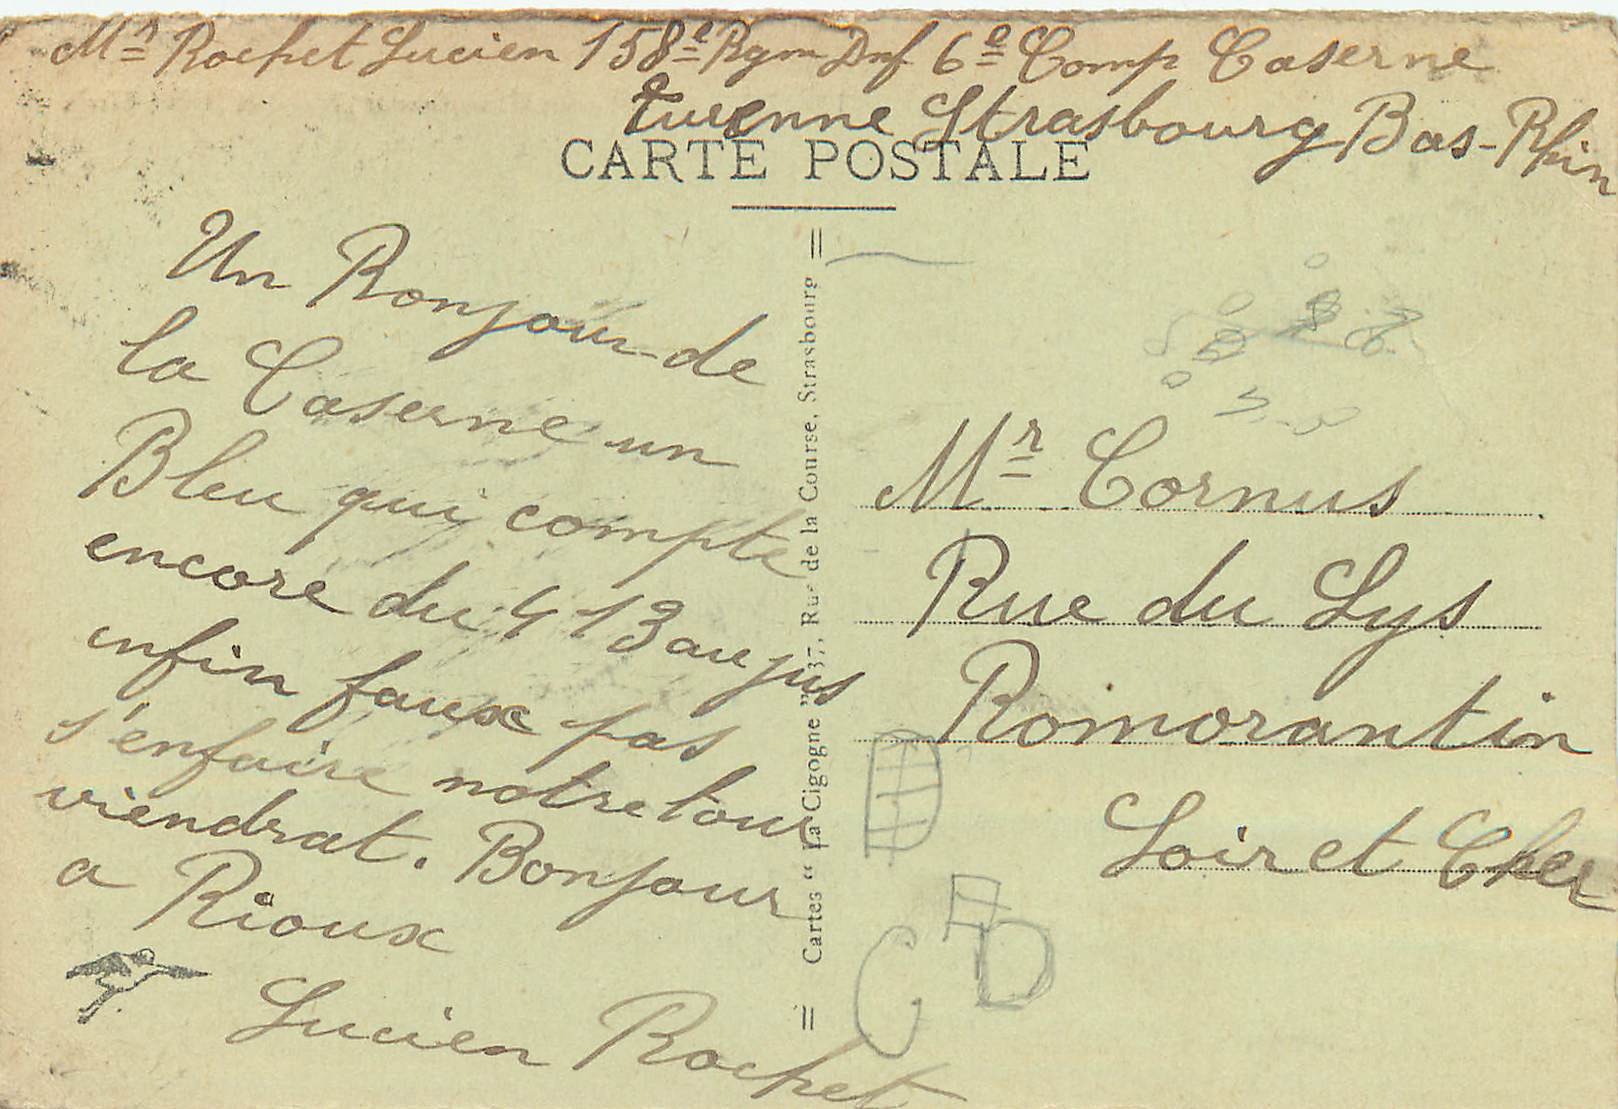 Mr Rochet Lucien 158e Rgm Inf 6e Comp Caserne
Turenne Strasbourg Bas-Rhin
CARTE POSTALE
Un Bonjour de
la Caserne un
Bleu qui compte
encore du 413 au jus
enfin faux pas
s'enfaire notre tour
viendrat. Bonjour
a Rioux
Lucien Rochet
Cartes "La Cigogne" 37, Rue de la Course, Strasbourg
Mr Cornus
Rue du Lys
Romorantin
Loir et Cher